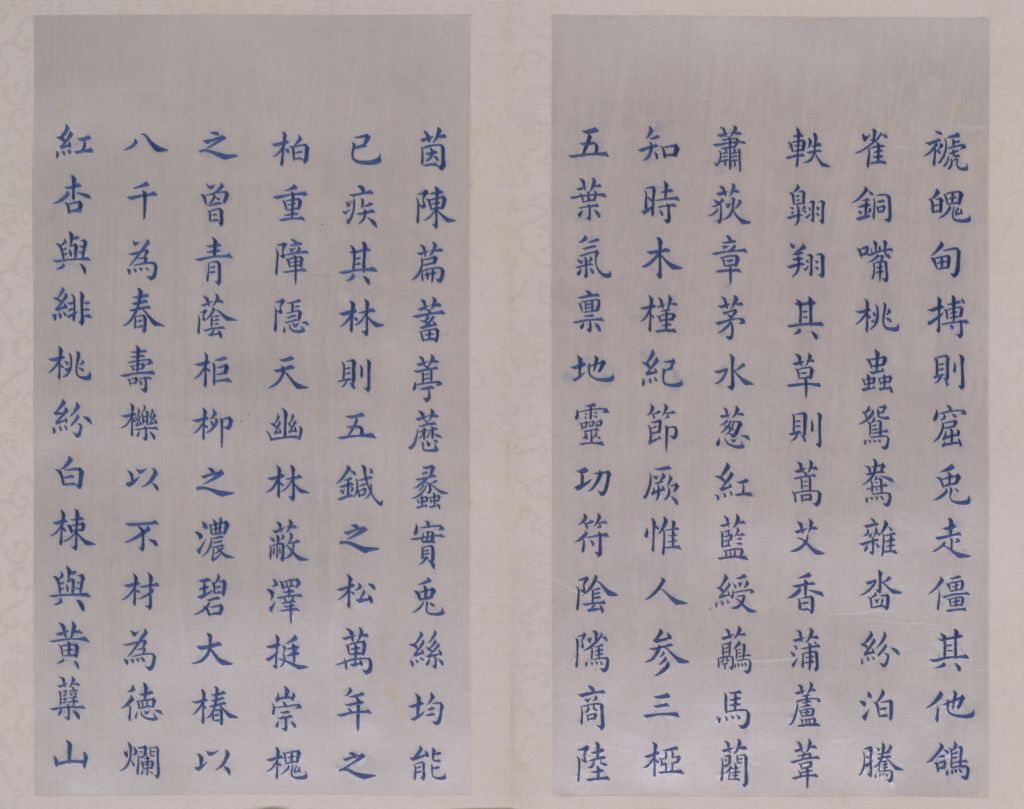 褫魄甸搏則窟兎走僵其他鴿
雀銅嘴桃蟲鴛鴦雜沓紛泊騰
軼翱翔其草則蒿艾香蒲蘆葦
蕭荻章茅水葱紅藍綬虉馬藺
知時木槿紀節厥惟人参三椏
五葉氣禀地靈功符陰隲商陸
茵陳萹蓄葶藶蠡實兎絲均能
已疾其林則五鍼之松萬年之
柏重障隱天幽林蔽澤挺崇槐
之曽青蔭柜柳之濃碧大椿以
八千為春壽櫟以不材為德爛
紅杏與緋桃紛白梀與黄蘗山